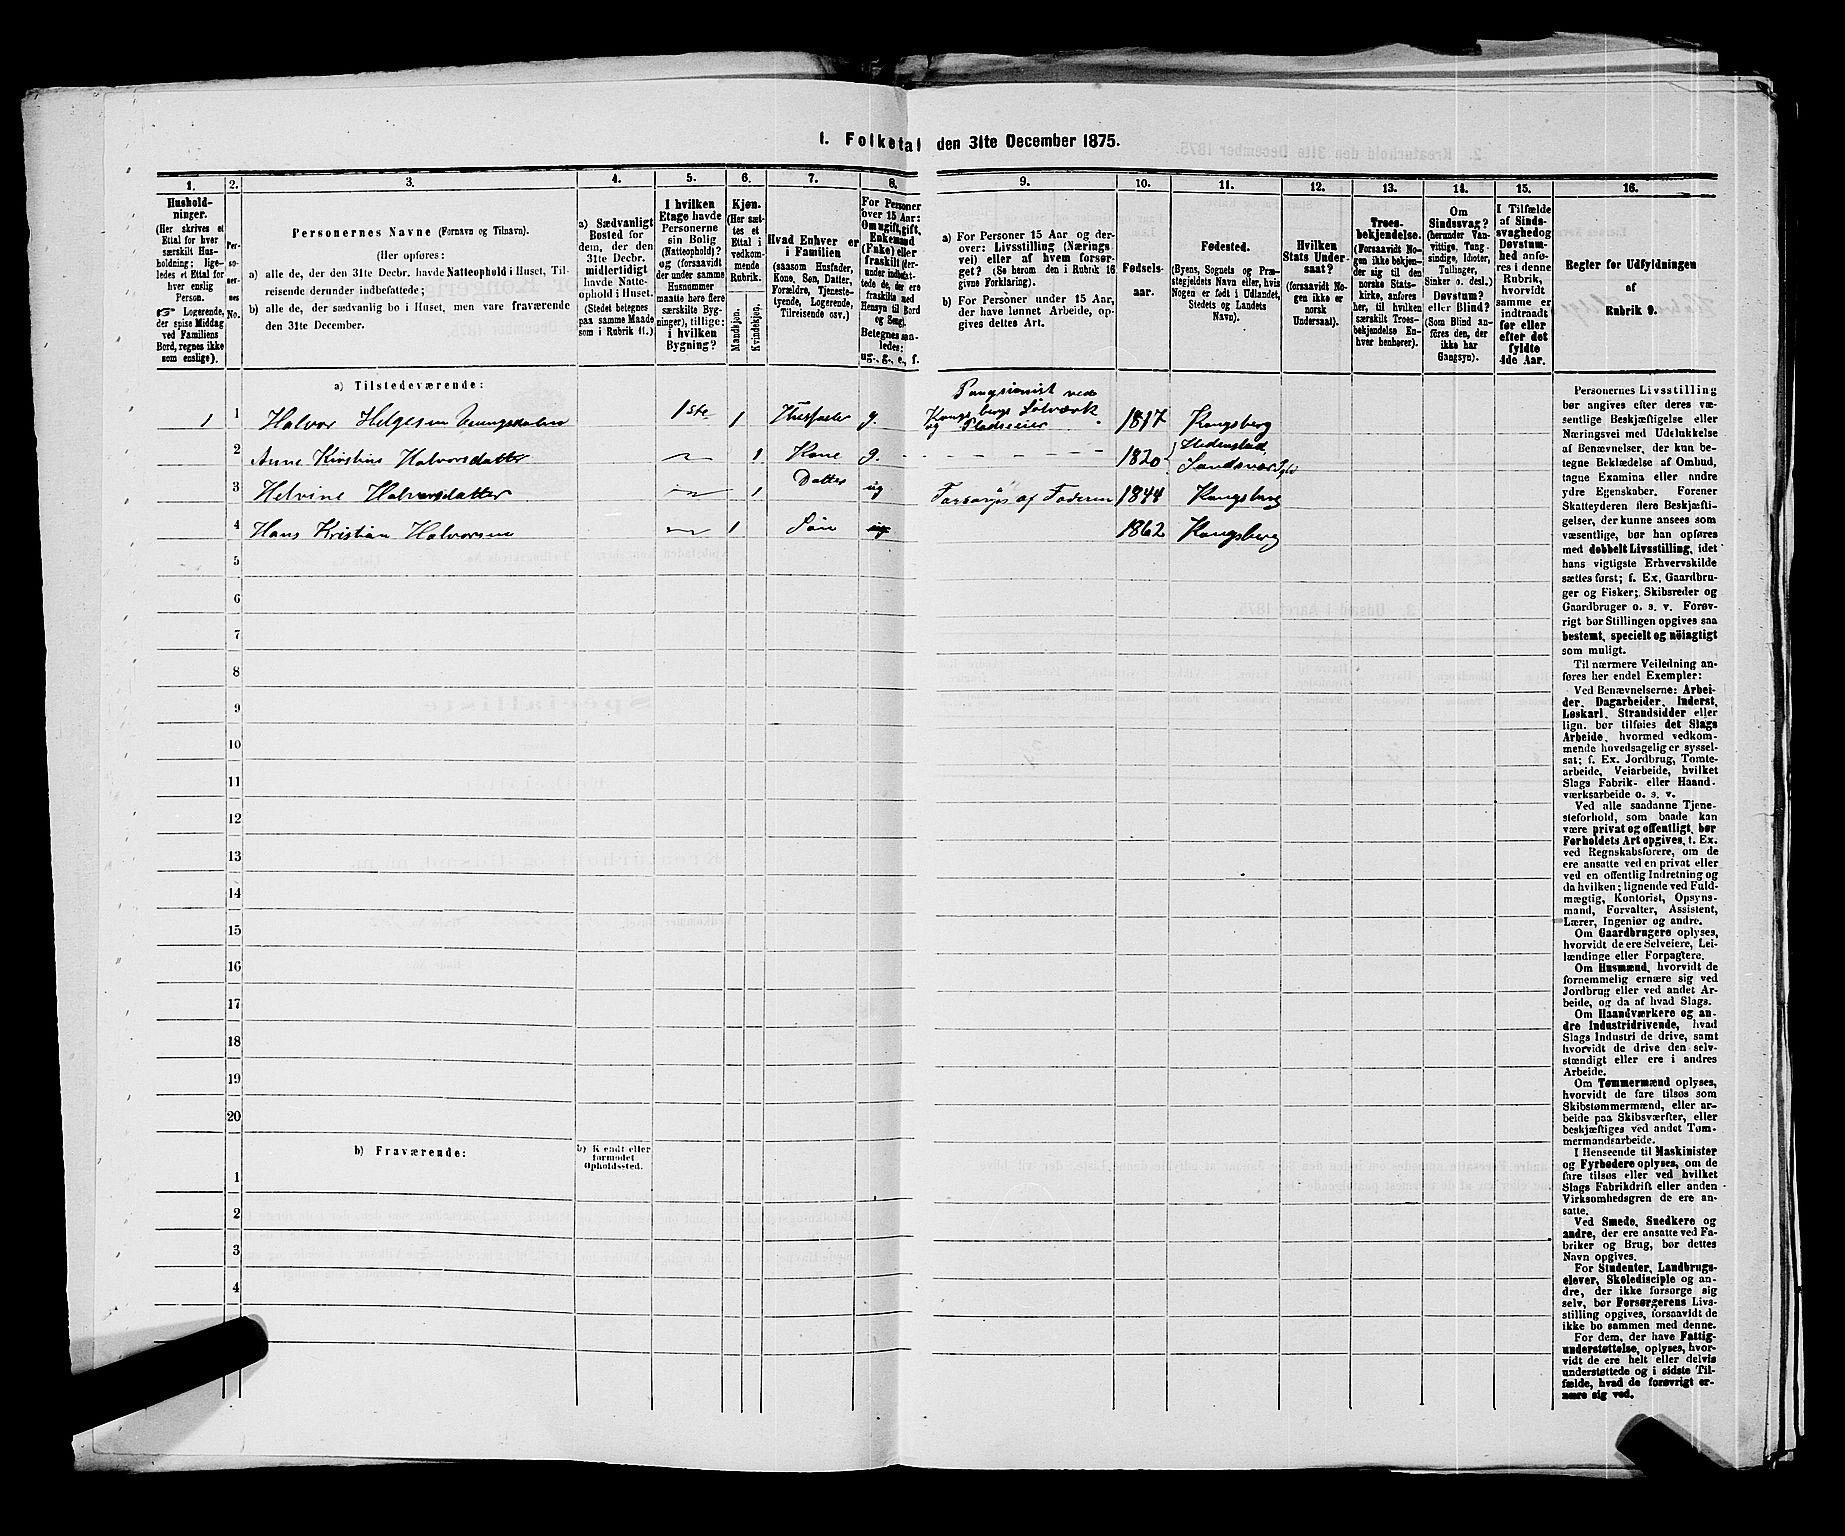 1. Folketal den 31te December 1875.
1.
Hushold-
ninger.
(Her skrives et
Ettal for hver
særskilt Hus-
holdning; lige-
ledes et Ettal for
hver enslig
Person.
☞ Logerende,
der spise Middag
ved Familiens
Bord, regnes ikke
som enslige).
2.
Per-
so-
ner-
nes
No.
3.
Personernes Navne (Fornavn og Tilnavn).
(Her opføres:
a) alle de, der den 31te Decbr. havde Natteophold i Huset, Til-
reisende derunder indbefattede;
b) alle de, der sædvanlig bo i Huset, men vare fraværende
den 31te December.
4.
a) Sædvanligt
Bosted for
dem, der den
31te Decbr.
midlertidigt
havde Natte-
ophold i Huset.
(Stedet betegnes
paa samme Maade
som i Rubrik 11.)
5.
I hvilken
Etage havde
Personerne
sin Bolig
(Natteophold)?
og (forsaavidt
der under samme
Husnummer
maatte høre flere
særskilte Byg-
ninger), tillige:
i hvilken
Bygning?
6.
Kjøn.
(Her sæt-
tes et
Ettal i
vedkom-
mende
Rubrik.
Mandkjøn.
Kvindekjøn.
7.
Hvad Enhver er
i Familien
(saasom Husfader,
Kone, Søn, Datter,
Forældre, Tjeneste-
tyende, Logerende,
Tilreisende osv.)
8.
For Personer
over 15 Aar:
Om ugift, gift,
Enkemand
(Enke) eller
fraskilt (der-
under indbefat-
tede de, der ere
fraskilte med
Hensyn til Bord
og Seng).
Betegnes saa-
ledes:
ug., g., e., f.
9.
a) For Personer 15 Aar og der-
over: Livsstilling (Nærings-
vei) eller af hvem forsør-
get? (Se herom den i Rubrik 16
givne Forklaring).
b) For Personer under 15 Aar,
der have lønnet Arbeide, op-
gives dettes Art.
10.
Fødsels-
aar.
11.
Fødested.
(Byens, Sognets og Præ-
stegjeldets Navn eller, hvis
Nogen er født i Udlandet,
Stedets og Landets
Navn).
12.
Hvilken
Stats Under-
saat?
(forsaavidt No-
gen ikke er
norsk
Undersaat).
13.
Troes-
bekjendelse.
(Forsaavidt No-
gen ikke bekjen-
der sig til den
norske Stats-
kirke, anføres
her, til hvilken
særskilt Troes-
bekjendelse En-
hver henhører).
14.
Om
Sindssvag?
(herunder Van-
vittige, Tung-
sindige, Idioter,
Tullinger,
Sinker o. desl.)
Døvstum?
eller Blind?
(Som Blind an-
føres den, der
ikke har
Gangsyn).
15.
I Tilfælde
af Sinds-
svaghed og
Døvstum-
hed anfø-
res i denne
Rubrik,
hvorvidt
samme er
indtraadt
før eller
efter det
fyldte
4de Aar.
16.
Regler for Udfyldningen
af
Rubrik 9.
a) Tilstedeværende:
1 1 Halvor Helgesen 1ste 1 Husfader g. Pangsionist ved Kongsbergs Sølvværk og Pladseier 1817 Kongsberg
2 Anne Kirstine Halvorsdatter 1 Kone g. 1820 Hedenstad, Sandsvær
3 Helvine Halvorsdatter 1 Datter ug Forsørges af Faderen 1844 Kongsberg
4 Hans Kristian Halvorsen 1 Søn ug 1862 Kongsberg
5
6
7
8
9
10
11
12
13
14
15
16
17
18
19
20
b) Fraværende:
b) Kjendt eller
formodet
Opholdssted.
1
2
3
4
Personernes Livsstilling
bør angives efter deres væ-
sentlige Beskjæftigelse eller
Næringsvei med Udelukkelse
af Benævnelser, der kun be-
tegne Beklædelse af Ombud,
tagne Examina eller andre
ydre Egenskaber. Forener
Skatteyderen flere Beskjæfti-
gelser, der kunne ansees som
væsentlige, bør han opføres
med dobbelt Livsstilling, idet
hans vigtigste Erhvervskilde
sættes først; f. Ex. Gaardbru-
ger og Fisker; Skibsreder og
Gaardbruger o. s. v. Forøv-
rigt bør Stillingen opgives saa
bestemt, specielt og nöiagtigt
som muligt.
Til nærmere Veiledning an-
føres her endel Exempler:
Ved Benævnelserne: Arbei-
der, Dagarbeider, Inderst,
Løskarl, Strandsidder eller
lign. bør tilføies det Slags
Arbeide, hvormed vedkom-
mende hovedsagelig er syssel-
sat; f. Ex. Jordbrug, Tomte-
arbeide, Veiarbeide, hvilket
Slags Fabrik- eller Haand-
værksarbeide o. s. v.
Ved alle saadanne Tjene-
steforhold, som baade kan
være privat og offentligt, bør
Forholdets Art opgives, f. Ex.
ved Regnskabsførere, om de
ere ansatte ved en privat eller
ved en offentlig Indretning og
da hvilken; lignende ved Fuld-
mægtig, Kontorist, Opsyns-
mand, Forvalter, Assistent,
Lærer, Ingeniør og andre.
Om Gaardbrugere oplyses,
hvorvidt de ere Selveiere, Lei-
lændinge eller Forpagtere.
Om Husmænd, hvorvidt de
fornemmelig ernære sig ved
Jordbrug eller ved andet Ar-
beide, og da af hvad Slags.
Om Haandværkere og an-
dre Industridrivende, hvad
Slags Industri de drive, samt
hvorvidt de drive den selv-
stændigt eller ere i andres
Arbeide.
Om Tømmermænd oplyses,
hvorvidt de fare tilsøs som
Skibstømmermænd, eller ar-
beide paa Skibsværfter, eller
beskjæftiges ved andet Tøm-
mermandsarbeide.
I Henseende til Maskinister
og Fyrbødere oplyses, om de
fare tilsøs eller ved hvilket
Slags Fabrikdrift eller anden
Virksomhedsgren de ere an-
satte.
Ved Smede, Snedkere og
andre, der ere ansatte ved Fa-
briker og Brug, bør dettes
Navn opgives.
For Studenter, Landbrugs-
elever, Skoledisciple og an-
dre, der ikke forsørge sig
selv, bør Forsørgerens Livs-
stilling opgives, forsaavidt de
ikke bo sammen med denne.
For dem, der have Fattig-
understøttelse, oplyses, hvor-
vidt de ere helt eller delvis
understøttede og i sidste Til-
fælde, hvad de forøvrigt er-
nære sig ved.